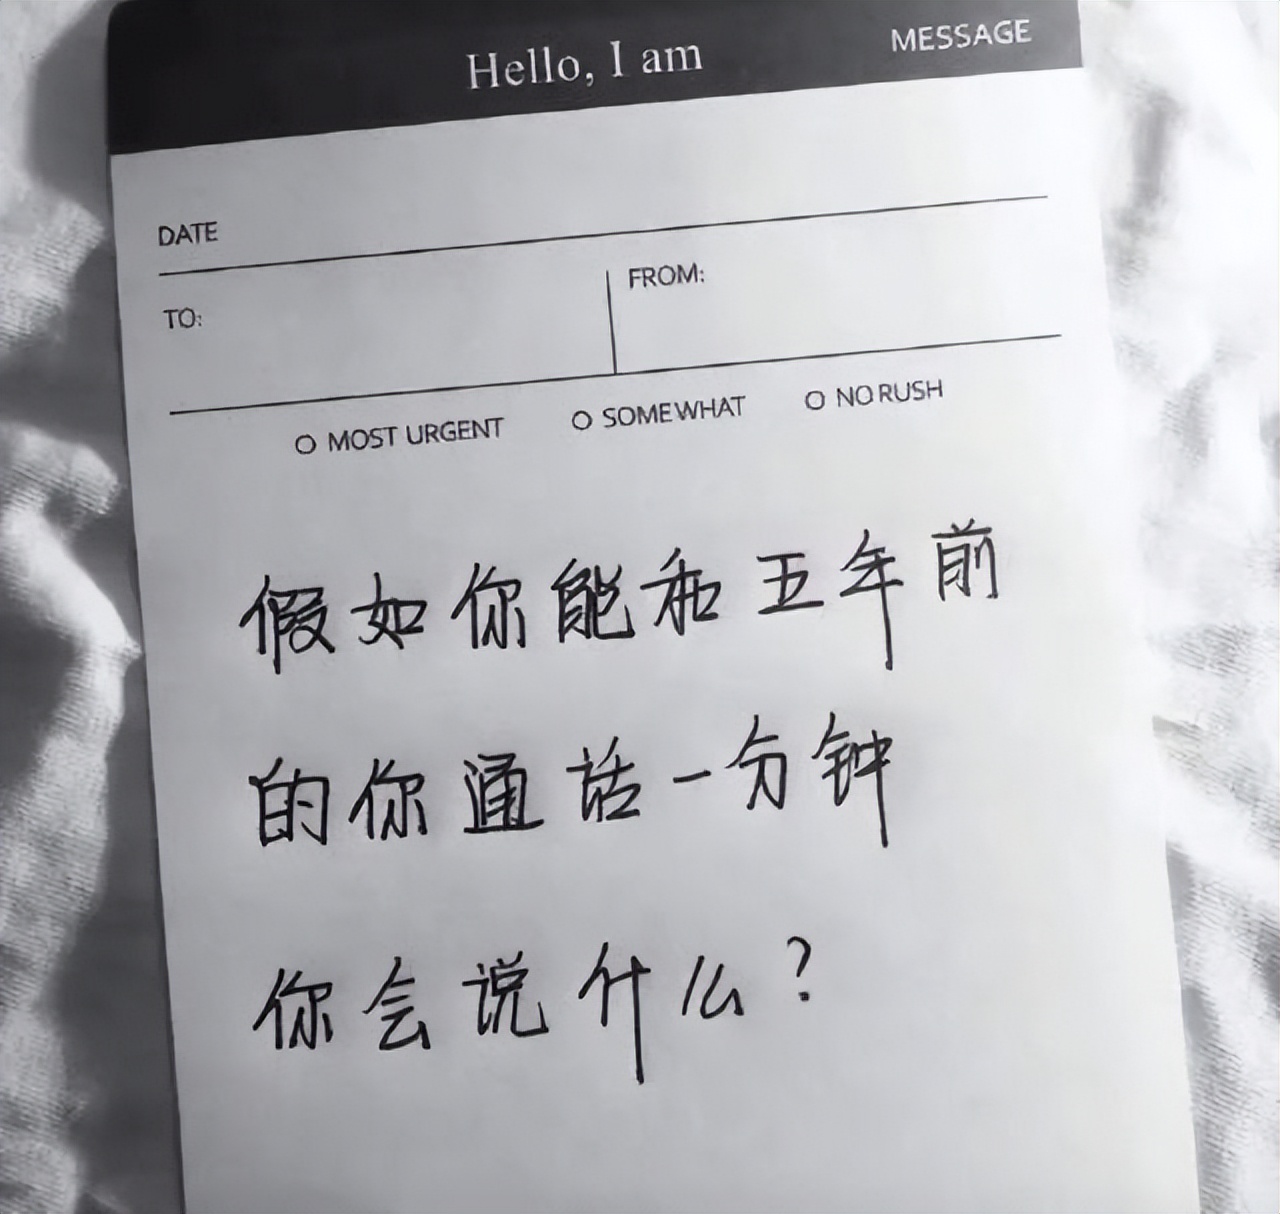 Hello, I am
MESSAGE
DATE
TO:
FROM:
MOST URGENT
SOMEWHAT
NO RUSH
假如你能和五年前
的你通话一分钟
你会说什么？